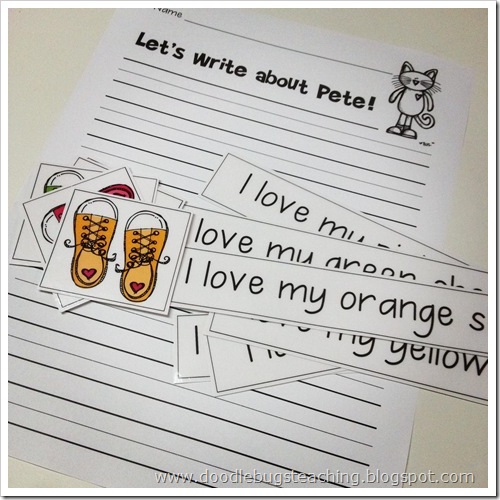 Name
Let's write about Pete!
I love my
love my green
I love my orange s
my yellow
I
www.doodlebugsteaching.blogspot.com